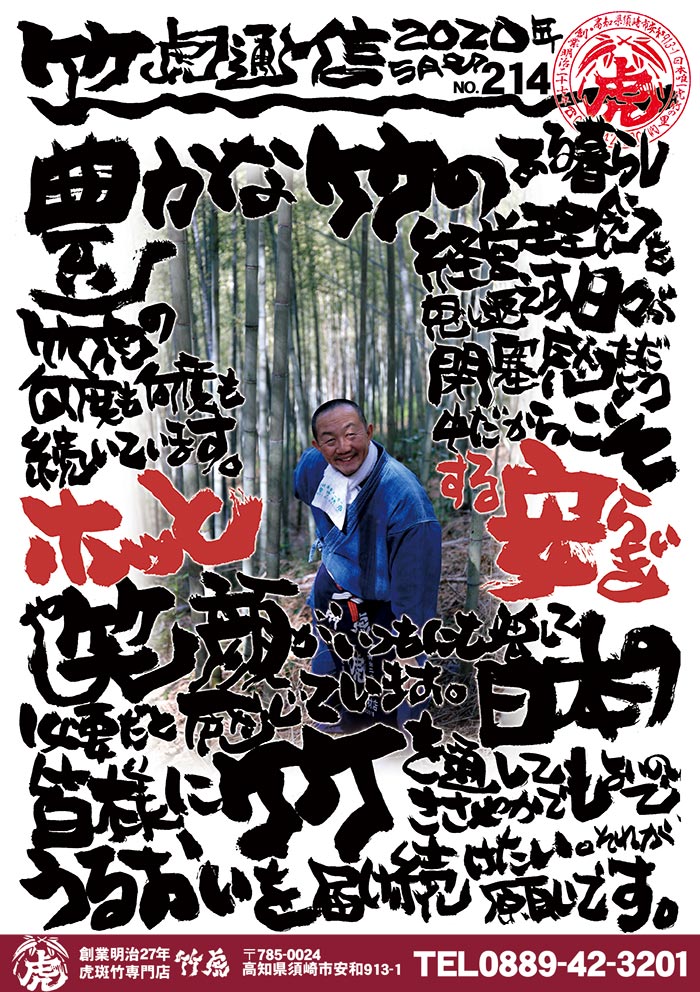 竹虎通信 2020年
5月号
NO.214
虎
豊かな竹のある暮らし
竹虎の経営理念を
何度も何度も思い返す日々が
続いています。閉塞感ただよう
中だからこそ
ホッとする安らぎ
や笑顔がいつもにも増して
必要だと感じています。日本の
皆様に竹を通して
ささやかでもよいので
うるおいを届け続けたい。それが
願いです。
虎
創業明治27年
虎斑竹専門店
竹虎
〒785-0024
高知県須崎市安和913-1
TEL0889-42-3201